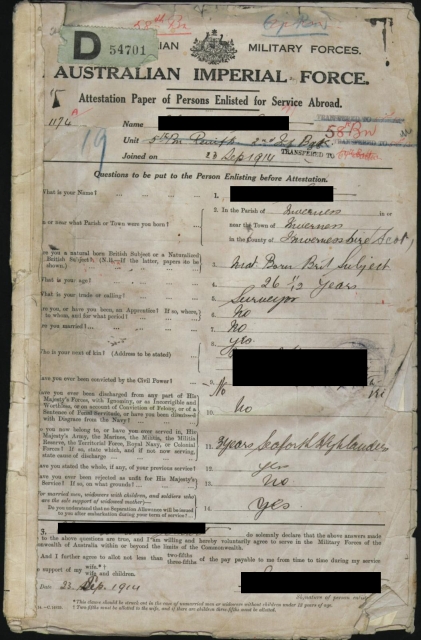 D 54701
MILITARY FORCES.
AUSTRALIAN IMPERIAL FORCE.
Attestation Paper of Persons Enlisted for Service Abroad.
1174 A
Name
19
Unit
58 Bn
TRANSFERRED TO
Joined on 23 Sep 1914
Questions to be put to the Person Enlisting before Attestation.
What is your Name? 1.
2. In the Parish of Inverness in or
in or near what Parish or Town were you born? near the Town of Inverness
in the County of Invernesshire Scot
Are you a natural born British Subject or a Naturalized
British Subject? (N.B.—If the latter, papers to be
shown.) 3. Nat Born Brit Subject
What is your age? 4. 26 Years
What is your trade or calling? 5. Surveyor
Are you, or have you been, an Apprentice? If so, where,
to whom, and for what period? 6. No
Are you married? 7. No
8. Yes
Who is your next of kin? (Address to be stated)
Have you ever been convicted by the Civil Power? 9. No
Have you ever been discharged from any part of His
Majesty's Forces, with Ignominy, or as Incorrigible and
Worthless, or on account of Conviction of Felony, or of a
Sentence of Penal Servitude, or have you been dismissed
with Disgrace from the Navy? 10. No
Do you now belong to, or have you ever served in, His
Majesty's Army, the Marines, the Militia, the Militia
Reserve, the Territorial Force, Royal Navy, or Colonial
Forces? If so, state which, and if not now serving,
state cause of discharge 11. 3 years Seaforth Highlanders
Have you stated the whole, if any, of your previous service? 12. Yes
Have you ever been rejected as unfit for His Majesty's
Service? If so, on what grounds? 13. No
(For married men, widowers with children, and soldiers who
are the sole support of widowed mother)—
Do you understand that no Separation Allowance will be issued
to you after embarkation during your term of service? 14. Yes
do solemnly declare that the above answers made
to the above questions are true, and I am willing and hereby voluntarily agree to serve in the Military Forces of the
Commonwealth of Australia within or beyond the limits of the Commonwealth.
And I further agree to allot not less than two-fifths three-fifths of the pay payable to me from time to time during my service
support of my wife.* wife and children.
Date 23 Sep. 1914
Signature of person